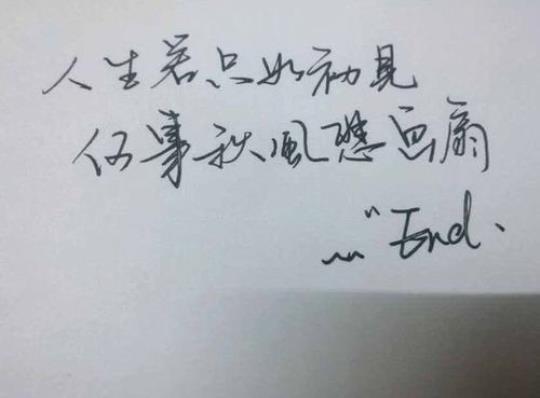 人生若只如初見
何事秋風悲画扇
~“End.